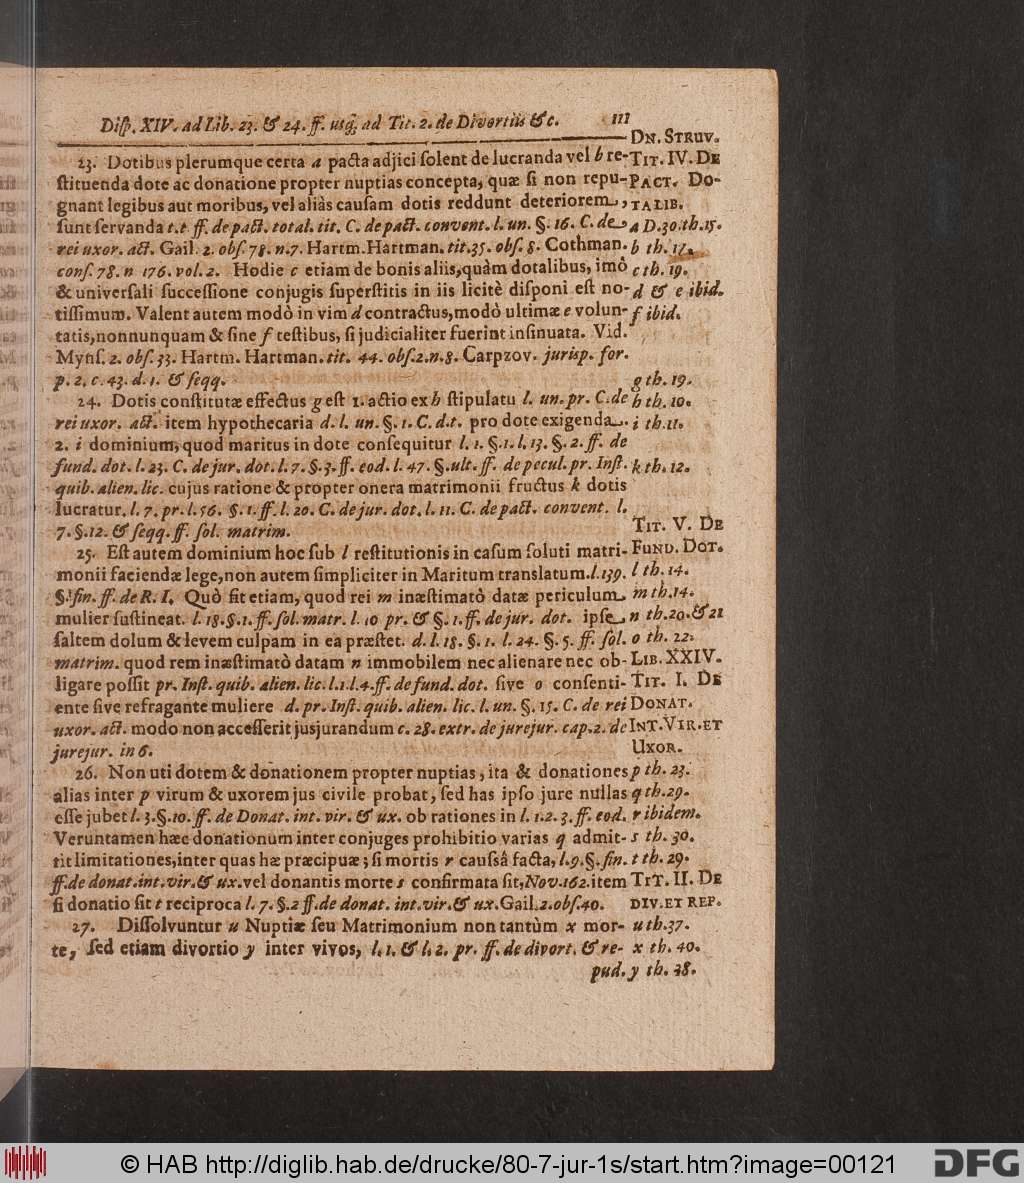 Diſp. XIV. ad Lib. 23. & 24. ff. uſq; ad Tit. 2. de Divortiis &c. 111
23. Dotibus plerumque certa a pacta adjici ſolent de lucranda vel b re-
ſtituenda dote ac donatione propter nuptias concepta, quæ ſi non repu-
gnant legibus aut moribus, vel aliàs cauſam dotis reddunt deteriorem,
ſunt ſervanda t.t. ff. de pact. total. tit. C. de pact. convent. l. un. §. 16. C. de
rei uxor. act. Gail. 2. obſ. 78. n.7. Hartm. Hartman. tit. 35. obſ. 8. Cothman.
conſ. 78. n 176. vol. 2. Hodie c etiam de bonis aliis, quàm dotalibus, imô
& univerſali ſucceſſione conjugis ſuperſtitis in iis licitè diſponi eſt no-
tiſſimum. Valent autem modò in vim d contractus, modò ultimæ e volun-
tatis, nonnunquam & ſine f teſtibus, ſi judicialiter fuerint inſinuata. Vid.
Mynſ. 2. obſ. 33. Hartm. Hartman. tit. 44. obſ. 2. n. 8. Carpzov. jurisp. for.
p. 2. c. 43. d. 1. & ſeqq.
24. Dotis conſtitutæ effectus g eſt 1. actio ex h ſtipulatu l. un. pr. C. de
rei uxor. act. item hypothecaria d. l. un. §. 1. C. d.t. pro dote exigenda.
2. i dominium, quod maritus in dote conſequitur l. 1. §. 1. l. 13. §. 2. ff. de
fund. dot. l. 23. C. de jur. dot. l. 7. §. 3. ff. eod. l. 47. §. ult. ff. de pecul. pr. Inſt.
quib. alien. lic. cujus ratione & propter onera matrimonii fructus k dotis
lucratur. l. 7. pr. l. 56. §. 1. ff. l. 20. C. de jur. dot. l. 11. C. de pact. convent. l.
7. §. 12. & ſeqq. ff. ſol. matrim.
25. Eſt autem dominium hoc ſub l reſtitutionis in caſum ſoluti matri-
monii faciendæ lege, non autem ſimpliciter in Maritum translatum. l. 139.
§. fin. ff. de R. I. Quò fit etiam, quod rei m inæſtimatò datæ periculum
mulier ſuſtineat. l. 18. §. 1. ff. ſol. matr. l. 10 pr. & §. 1. ff. de jur. dot. ipſe
ſaltem dolum & levem culpam in ea præſtet. d. l. 18. §. 1. l. 24. §. 5. ff. ſol.
matrim. quod rem inæſtimatò datam n immobilem nec alienare nec ob-
ligare poſſit pr. Inſt. quib. alien. lic. l. 1. l. 4. ff. de fund. dot. ſive o conſenti-
ente ſive refragante muliere d. pr. Inſt. quib. alien. lic. l. un. §. 15. C. de rei
uxor. act. modo non acceſſerit jusjurandum c. 28. extr. de jurejur. cap. 2. de
jurejur. in 6.
26. Non uti dotem & donationem propter nuptias, ita & donationes
alias inter p virum & uxorem jus civile probat, ſed has ipſo jure nullas
eſſe jubet l. 3. §. 10. ff. de Donat. int. vir. & ux. ob rationes in l. 1. 2. 3. ff. eod.
Veruntamen hæc donationum inter conjuges prohibitio varias q admit-
tit limitationes, inter quas hæ præcipuæ; ſi mortis r cauſsâ facta, l. 9. §. fin.
ff. de donat. int. vir. & ux. vel donantis morte s confirmata ſit, Nov. 162. item
ſi donatio ſit t reciproca l. 7. §. 2 ff. de donat. int. vir. & ux. Gail. 2. obſ. 40.
27. Diſſolvuntur u Nuptiæ ſeu Matrimonium non tantùm x mor-
te, ſed etiam divortio y inter vivos, l. 1. & l. 2. pr. ff. de divort. & re-
pud.
DN. STRUV.
TIT. IV. DE
PACT. DO-
TALIB.
a D. 30. th. 15.
b th. 17.
c th. 19.
d & e ibid.
f ibid.
g th. 19.
h th. 10.
i th. 11.
k th. 12.
TIT. V. DE
FUND. DOT.
l th. 14.
m th. 14.
n th. 20. & 21
o th. 22.
LIB. XXIV.
TIT. I. DE
DONAT.
INT. VIR. ET
UXOR.
p th. 23.
q th. 29.
r ibidem.
s th. 30.
t th. 29.
TIT. II. DE
DIV. ET REP.
u th. 37.
x th. 40.
y th. 38.
© HAB http://diglib.hab.de/drucke/80-7-jur-1s/start.htm?image=00121
DFG